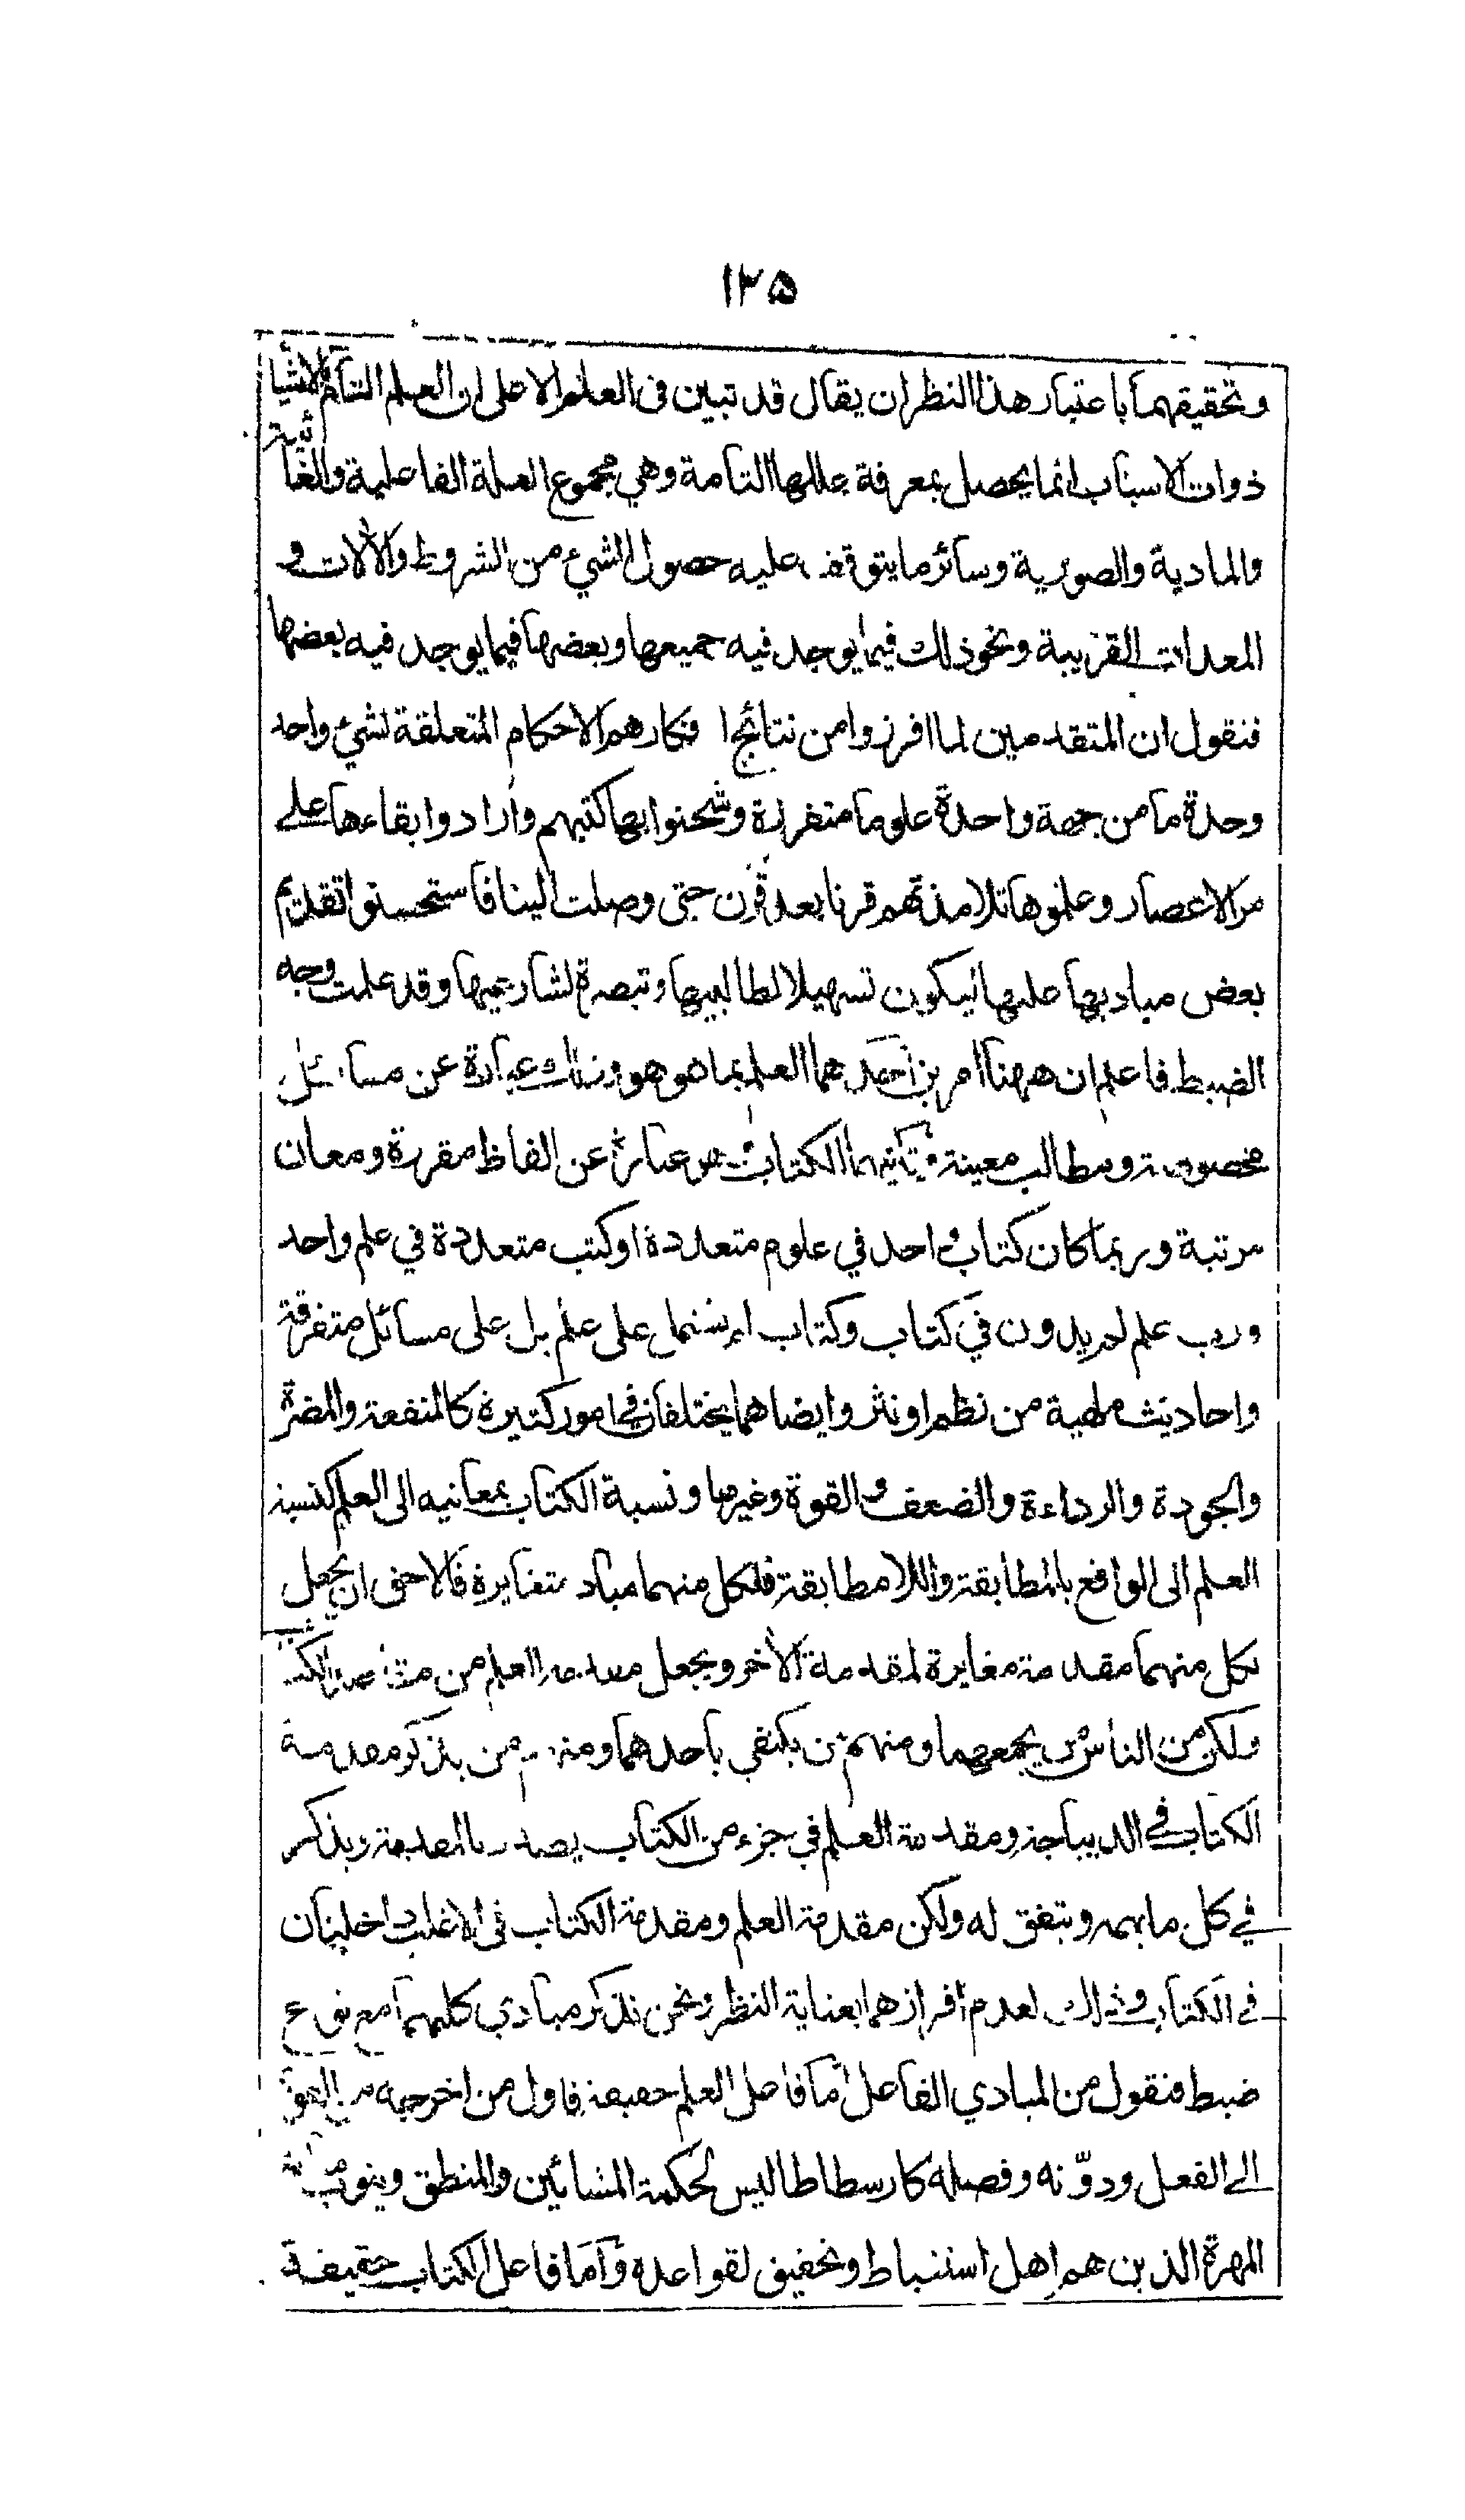 ١٢٥
وتحقيقهما باعتبار هذا النظر ان يقال قد تبين فى العلم الاعلى ان العلم التام بالاشيا
ذوات الاسباب انما يحصل بمعرفة عللها التامة وهي مجموع العلة الفاعلية والغائية
والمادية والصورية وسائر ما يتوقف عليه حصول الشيء من الشروط والالات و
المعدات القريبة ونحو ذلك فيما يوجد فيه جميعها وبعضها فيما يوجد فيه بعضها
فنقول ان المتقدمين لما افرزوا من نتائج افكارهم الاحكام المتعلقة لشيء واحد
وحدة ما من جهة واحدة علوما متفردة وشحنوا بها كتبهم وارادوا ابقاءها على
مر الاعصار وعلموها تلامذتهم قرنا بعد قرن حتى وصلت الينا فاستحسنوا تقديم
بعض مباديها عليها ليكون تسهيلا لطالبيها وتبصرة لشارعيها وقد علمت وجه
الضبط فاعلم ان ههنا امرين احدهما العلم بما هو هو وذلك عبارة عن مسائل
مخصوصة ومطالب معينة وثانيهما الكتاب وهو عبارة عن الفاظ مقررة ومعان
مرتبة وربما كان كتاب واحد في علوم متعددة او كتب متعددة في علم واحد
ورب علم لم يدون في كتاب وكتاب لم يشتمل على علم بل على مسائل متفرقة
واحاديث ملهية من نظم او نثر وايضا هما يختلفان في امور كثيرة كالمنفعة والمضرة
والجودة والرداءة والضعف والقوة وغيرها ونسبة الكتاب بمعانيه الى العلم كنسبة
العلم الى الواقع بالمطابقة واللامطابقة فلكل منهما مباد متغايرة فالاحق ان يجعل
لكل منهما مقدمة مغايرة لمقدمة الاخر ويجعل مقدمة العلم من الكتب
ولكن من الناس من يجمعهما ومنهم من يكتفي باحدهما ومنهم من يذكر مقدمة
الكتاب في الديباجة ومقدمة العلم في جزء من الكتاب يصدر بالمقدمة ويذكر
في كل ما يهمه ويتفق له ولكن مقدمة العلم ومقدمة الكتاب في الاغلب داخلتان
في الكتاب وذلك لعدم افرازهما بعناية النظر ونحن نذكر مبادي كليهما مع نوع
ضبط فنقول من المبادي الفاعل اما فاعل العلم حقيقة فاول من اخرجه من القوة
الى الفعل ودوّنه وفصله كارسطاطاليس لحكمة المشائين والمنطق وينوب
المهرة الذين هم اهل استنباط وتحقيق لقواعده واما فاعل الكتاب حقيقة